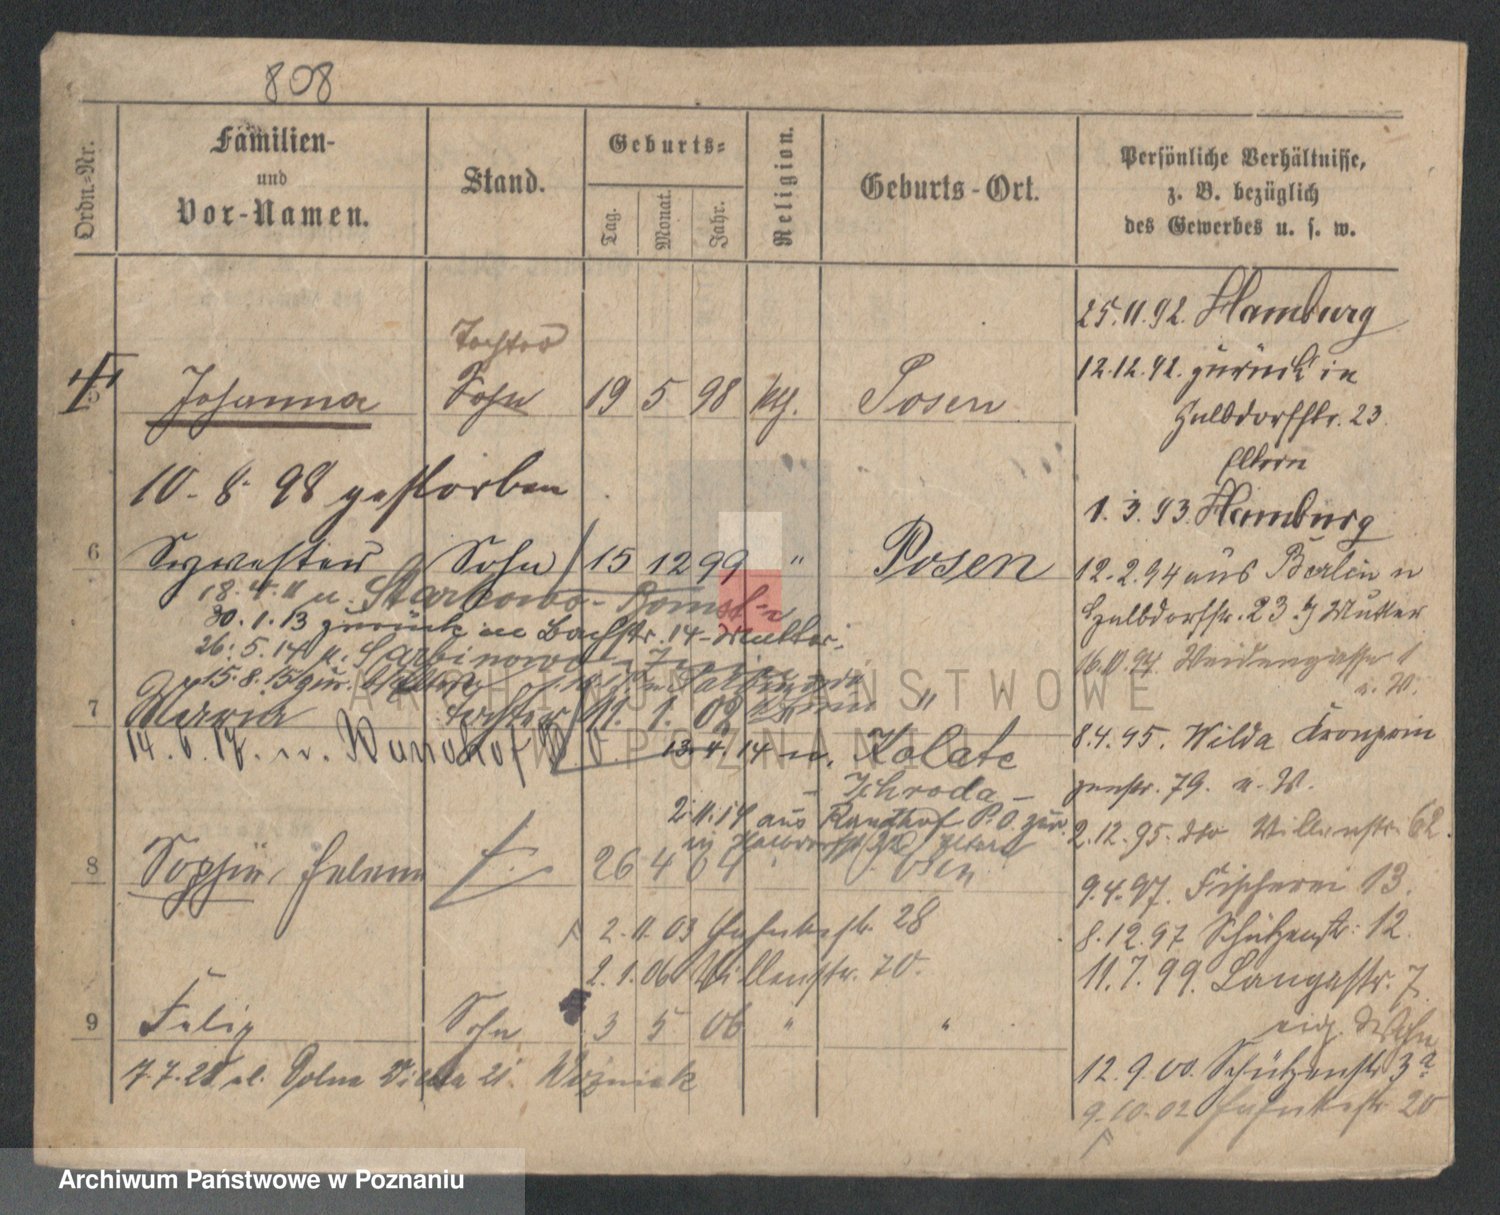 808
Ordn.-Nr.
Familien-
und
Vor-Namen.
Stand.
Geburts-
Tag.
Monat.
Jahr.
Religion.
Geburts-Ort.
Persönliche Verhältnisse,
z. B. bezüglich
des Gewerbes u. s. w.
25.11.92. Hamburg
Tochter
5 Johanna Sohn 19 5 98 kth. Posen
12.12.92. zurück in
Halbdorfstr. 23
Eltern
10. 8. 98 gestorben
1. 3. 93. Hamburg
6 Sylvester Sohn 15 12 99 " Posen
12. 2. 94 aus Berlin n
Halbdorfstr. 23 Mutter
18. 4. 11 n. Starkowo - Bomst
30. 1. 13 zurück in Bachstr. 14 - Mutter
26. 5. 14 n.
15. 8. 15 zur.
16.10.94. Weidengasse 1
a. W.
7 Maria Tochter 11. 1. 02 " "
14. 6. 17. n. 13. 4. 14 n. Kolate
- Schroda -
8.4.95. Wilda Kronprin
zenstr. 79. a. W.
2. 11. 14 aus Randhof P. O. zur.
in
2.12.95. dto Villenstr. 62.
8 Sophie, Helena 26 4 04 Posen
9.4.97. Fischerei 13.
2. 11. 03 28
8.12.97 Schützenstr. 12.
2. 1. 06 Villenstr. 70.
11. 7. 99. Langestr. 7
9 Felix Sohn 3 5 06 " "
12. 9. 00. Schützenstr 3a
7. 7. 21 n. Dolna Wilda 21. Woźniak
9. 10. 02 20
ARCHIWUM PAŃSTWOWE
W POZNANIU
Archiwum Państwowe w Poznaniu